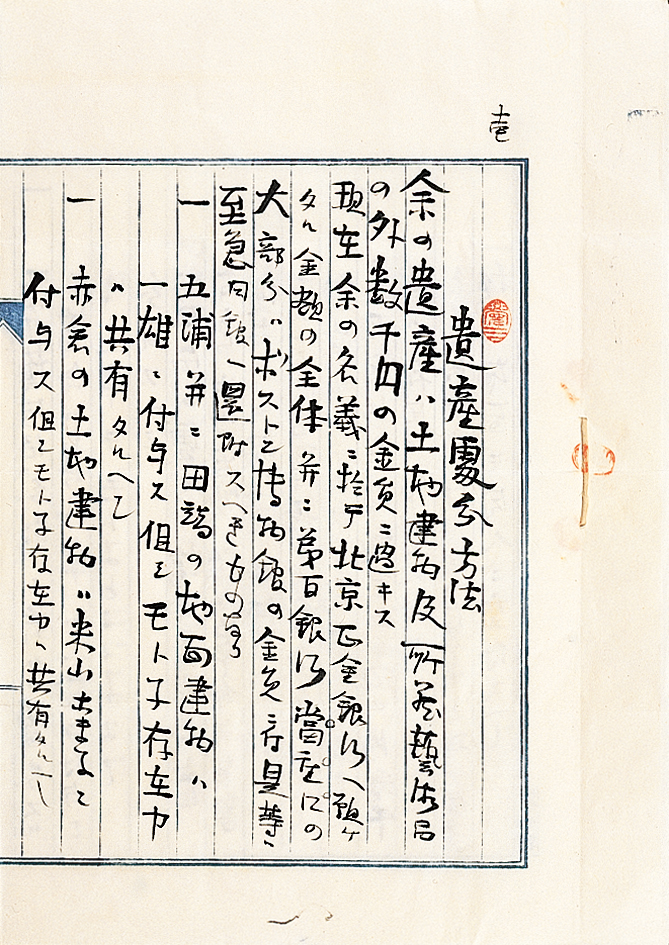 壱
遺産處分方法
余の遺産ハ土地建物及所蔵藝術品
の外数千円の金員ニ過キス
現在余の名義ニ於テ北京正金銀行ヘ預ケ
タル金額の全体并ニ第百銀行當座口の
大部分ハボストン博物館の金員ニ付是等ハ
至急同館ヘ還附スヘきものなり
一 五浦并ニ田端の地面建物ハ
一雄ニ付与ス但シモト子存在中
ハ共有タルヘシ
一 赤倉の土地建物ハ米山古まよニ
付与ス但シモト子存在中ハ共有タルヘシ